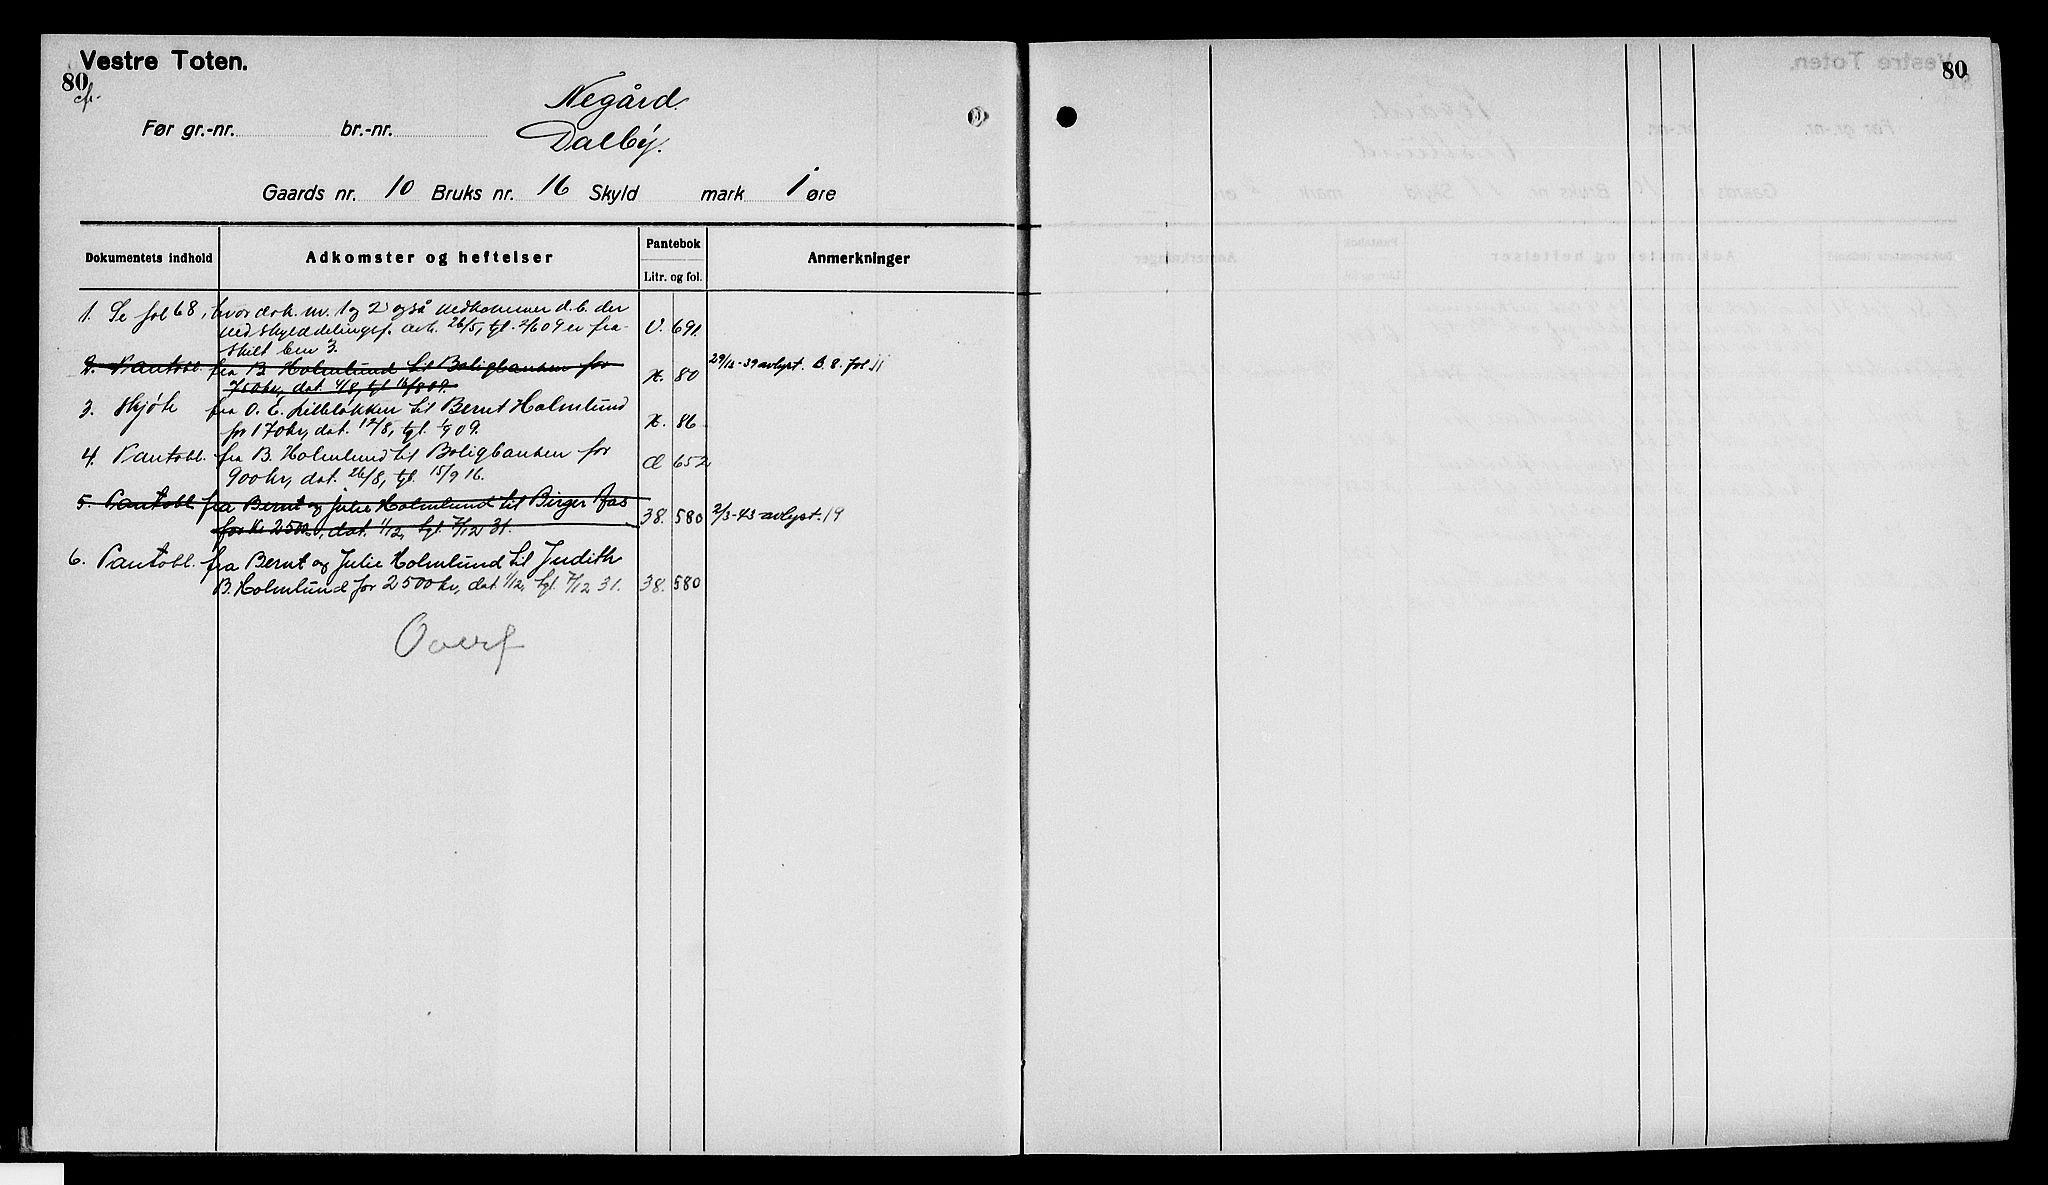 Vestre Toten.
80
cfr.
Negård.
Før gr.-nr. br.-nr.
Dalby.
Gaards nr. 10 Bruks nr. 16 Skyld mark 1 øre
Dokumentets indhold Adkomster og heftelser Pantebok Litr. og fol. Anmerkninger
1. Se fol 68, hvor dok. nr. 1 og 2 også vedkommer d.b. der
ved skylddelingsf. avh. 26/5, tgl. 2/6 09 er fra- U. 691
skilt bnr 3.
2. Pantobl. fra B. Holmlund til Boligbanken for 29/12-39 avlyst. B. 8. fol 11
750 kr, dat. 4/8, tgl 16/8 09. X. 80
3. Skjøte fra O. E. Lilleløkken til Bernt Holmlund
for 170 kr, dat. 12/8, tgl. 1/9 09. X. 86
4. Pantobl. fra B. Holmlund til Boligbanken for
900 kr, dat. 26/8, tgl. 15/9 16. d 652
5. Pantobl. fra Bernt og Julie Holmlund til Birger
for kr 2500, dat. 1/12, tgl. 7/12 31. 38. 580 2/3-43 avlyst. 19
6. Pantobl. fra Bernt og Julie Holmlund til Judith
B. Holmlund for 2500 kr, dat. 1/12, tgl. 7/12 31. 38. 580
Overf
80